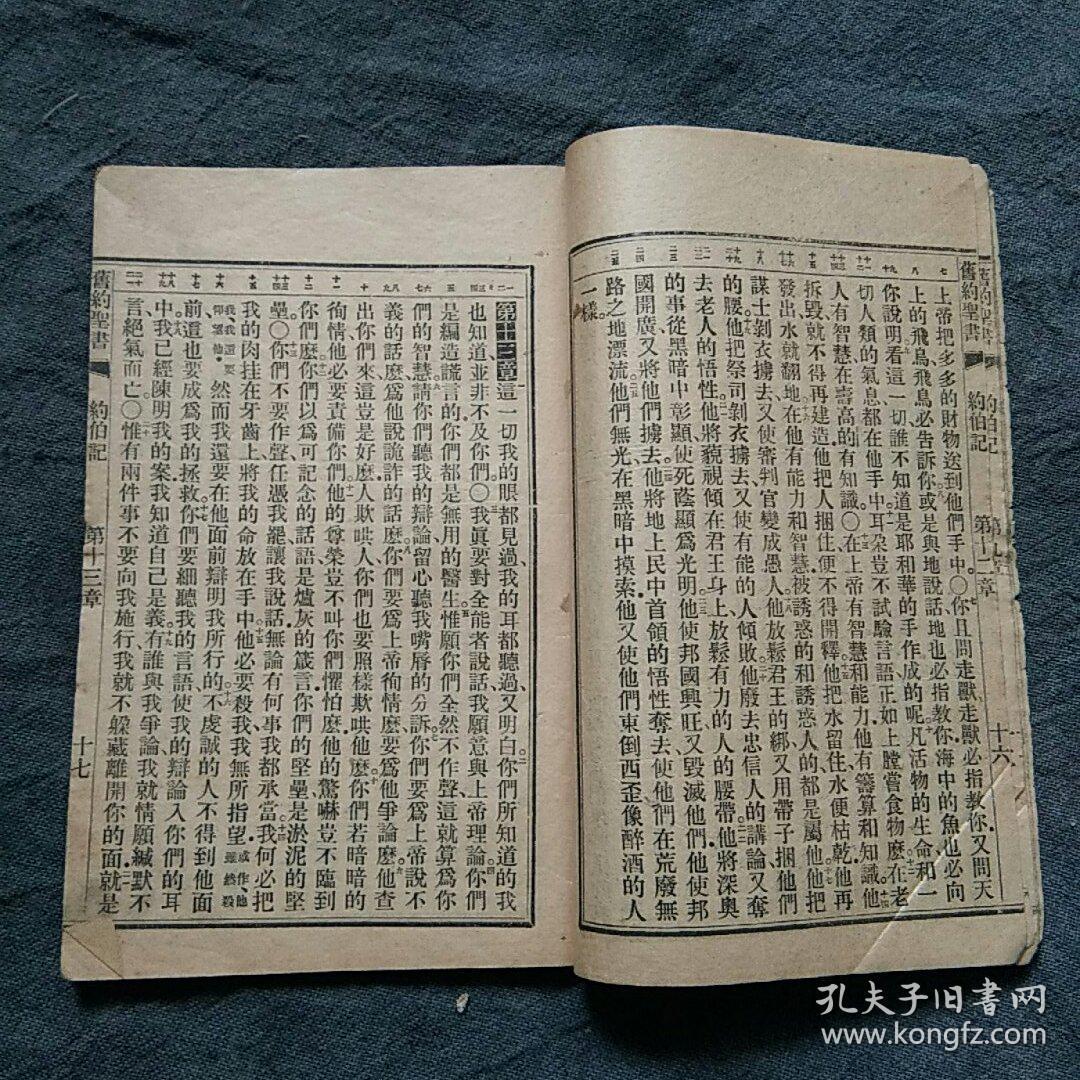 舊約聖書 約伯記 第十二章 十六
上帝把多多的財物送到他們手中。〇你且問走獸走獸必指教你又問天
上的飛鳥飛鳥必告訴你或是與地說話地也必指教你海中的魚也必向
你說明看這一切誰不知道是耶和華的手作成的呢凡活物的生命和一
切人類的氣息都在他手中耳朵豈不試驗言語正如上膛嘗食物麼在老
人有智慧在壽高的有知識〇在上帝有智慧和能力他有籌算和知識他
拆毀就不得再建造他把人捆住便不得開釋他把水留住水便枯乾他再
發出水就翻地在他有能力和智慧被誘惑的和誘惑人的都是屬他他把
謀士剝衣擄去又使審判官變成愚人他放鬆君王的綁又用帶子捆他們
的腰他把祭司剝衣擄去又使有能的人傾敗他廢去忠信人的講論又奪
去老人的悟性他將藐視傾在君王身上放鬆有力的人的腰帶他將深奧
的事從黑暗中彰顯使死蔭顯爲光明他使邦國興旺又毀滅他們他使邦
國開廣又將他們擄去他將地上民中首領的悟性奪去使他們在荒廢無
路之地漂流他們無光在黑暗中摸索他又使他們東倒西歪像醉酒的人
一樣。
第十三章 這一切我的眼都見過我的耳都聽過又明白你們所知道的我
也知道並非不及你們。〇我眞要對全能者說話我願意與上帝理論你們
是編造謊言的你們都是無用的醫生惟願你們全然不作聲這就算爲你
們的智慧請你們聽我的辯論留心聽我嘴唇的分訴你們要爲上帝說不
義的話麼爲他說詭詐的話麼你們要爲上帝徇情麼要爲他爭論麼他查
出你們來這豈是好麼人欺哄人你們也要照樣欺哄他麼你們若暗暗的
徇情他必要責備你們他的尊榮豈不叫你們懼怕麼他的驚嚇豈不臨到
你們麼你們以爲可記念的話語是爐灰的箴言你們的堅壘是淤泥的堅
壘。〇你們不要作聲任憑我罷讓我說話無論有何事我都承當我何必把
我的肉挂在牙齒上將我的命放在手中他必要殺我我無所指望。或作他雖然殺
我我還要仰望他 然而我還要在他面前辯明我所行的不虔誠的人不得到他面
前這也要成爲我的拯救你們要細聽我的言語使我的辯論入你們的耳
中我已經陳明我的案我知道自己是義有誰與我爭論我就情願緘默不
言絕氣而亡〇惟有兩件事不要向我施行我就不躲藏離開你的面就是
舊約聖書 約伯記 第十三章 十七
孔夫子旧書网
www.kongfz.com